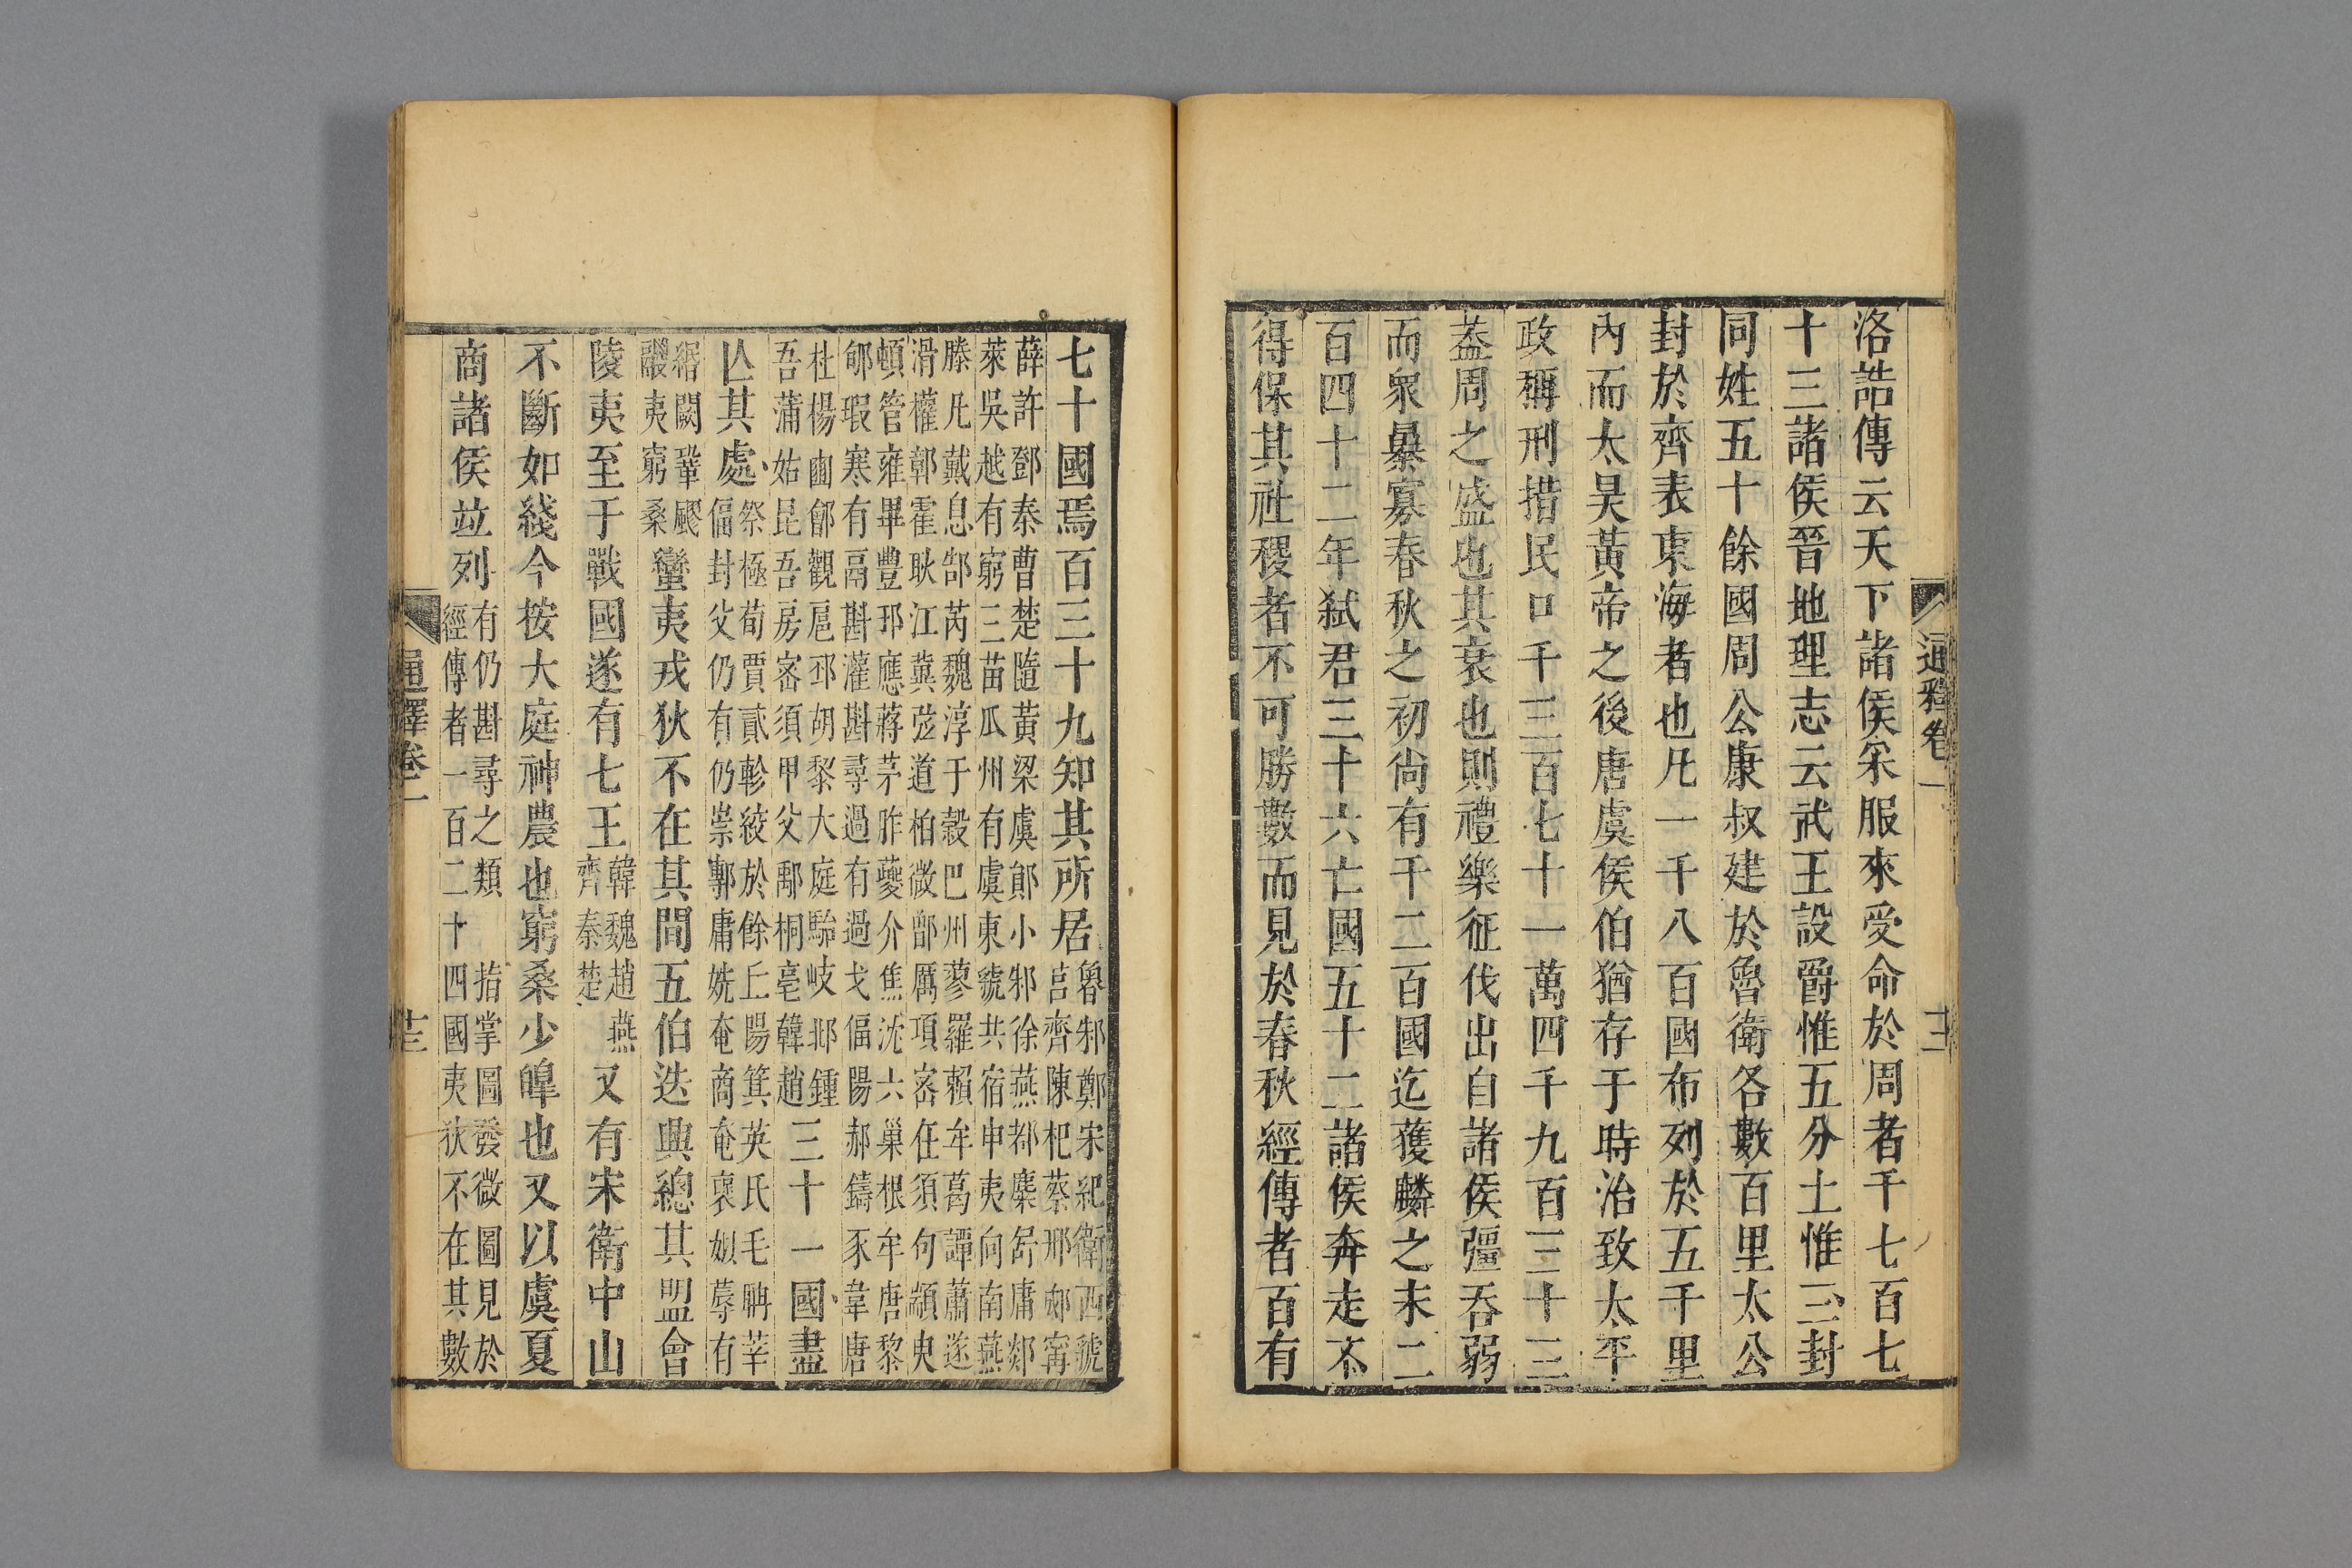 通釋卷一
十二
洛誥傳云天下諸侯采服來受命於周者千七百七
十三諸侯晉地理志云武王設爵惟五分土惟三封
同姓五十餘國周公康叔建於魯衛各數百里太公
封於齊表東海者也凡一千八百國布列於五千里
內而太昊黃帝之後唐虞侯伯猶存于時治致太平
政稱刑措民口千三百七十一萬四千九百三十三
葢周之盛也其衰也則禮樂征伐出自諸侯彊吞弱
而衆暴寡春秋之初尚有千二百國迄獲麟之末二
百四十二年弑君三十六亡國五十二諸侯奔走不
得保其社稷者不可勝數而見於春秋經傳者百有
七十國焉百三十九知其所居
魯邾鄭宋紀衛西虢
莒齊陳杞蔡邢郕甯
薛許鄧秦曹楚隨黃梁虞鄖小邾徐燕鄀麋舒庸郯
萊吳越有窮三苗瓜州有虞東虢共宿申夷向南燕
滕凡戴息郜芮魏淳于穀巴州蓼羅賴牟葛譚蕭遂
滑權郭霍耿江冀弦道柏微鄫厲項密任須句顓臾
頓管雍畢豐邘應蔣茅胙夔介焦沈六巢根牟唐黎
郇瑕寒有鬲斟灌斟尋過有過戈偪陽郝鑄豕韋唐
杜楊豳鄶觀扈邳胡黎大庭駘岐邶鍾
吾蒲姑昆吾房密須甲父鄅桐亳韓趙
三十一國盡
亾其處
祭極荀賈貳軫絞於餘丘陽箕英氏毛聃莘
偪封父仍有仍崇鄟庸姺奄商奄褒姒蓐有
緡闕鞏飂
鬷夷窮桑
蠻夷戎狄不在其間五伯迭興總其盟會
陵夷至于戰國遂有七王
韓魏趙燕
齊秦楚
又有宋衛中山
不斷如綫今按大庭神農也窮桑少皥也又以虞夏
商諸侯竝列
有仍斟尋之類 指掌圖發微圖見於
經傳者一百二十四國夷狄不在其數
通釋卷一
十三